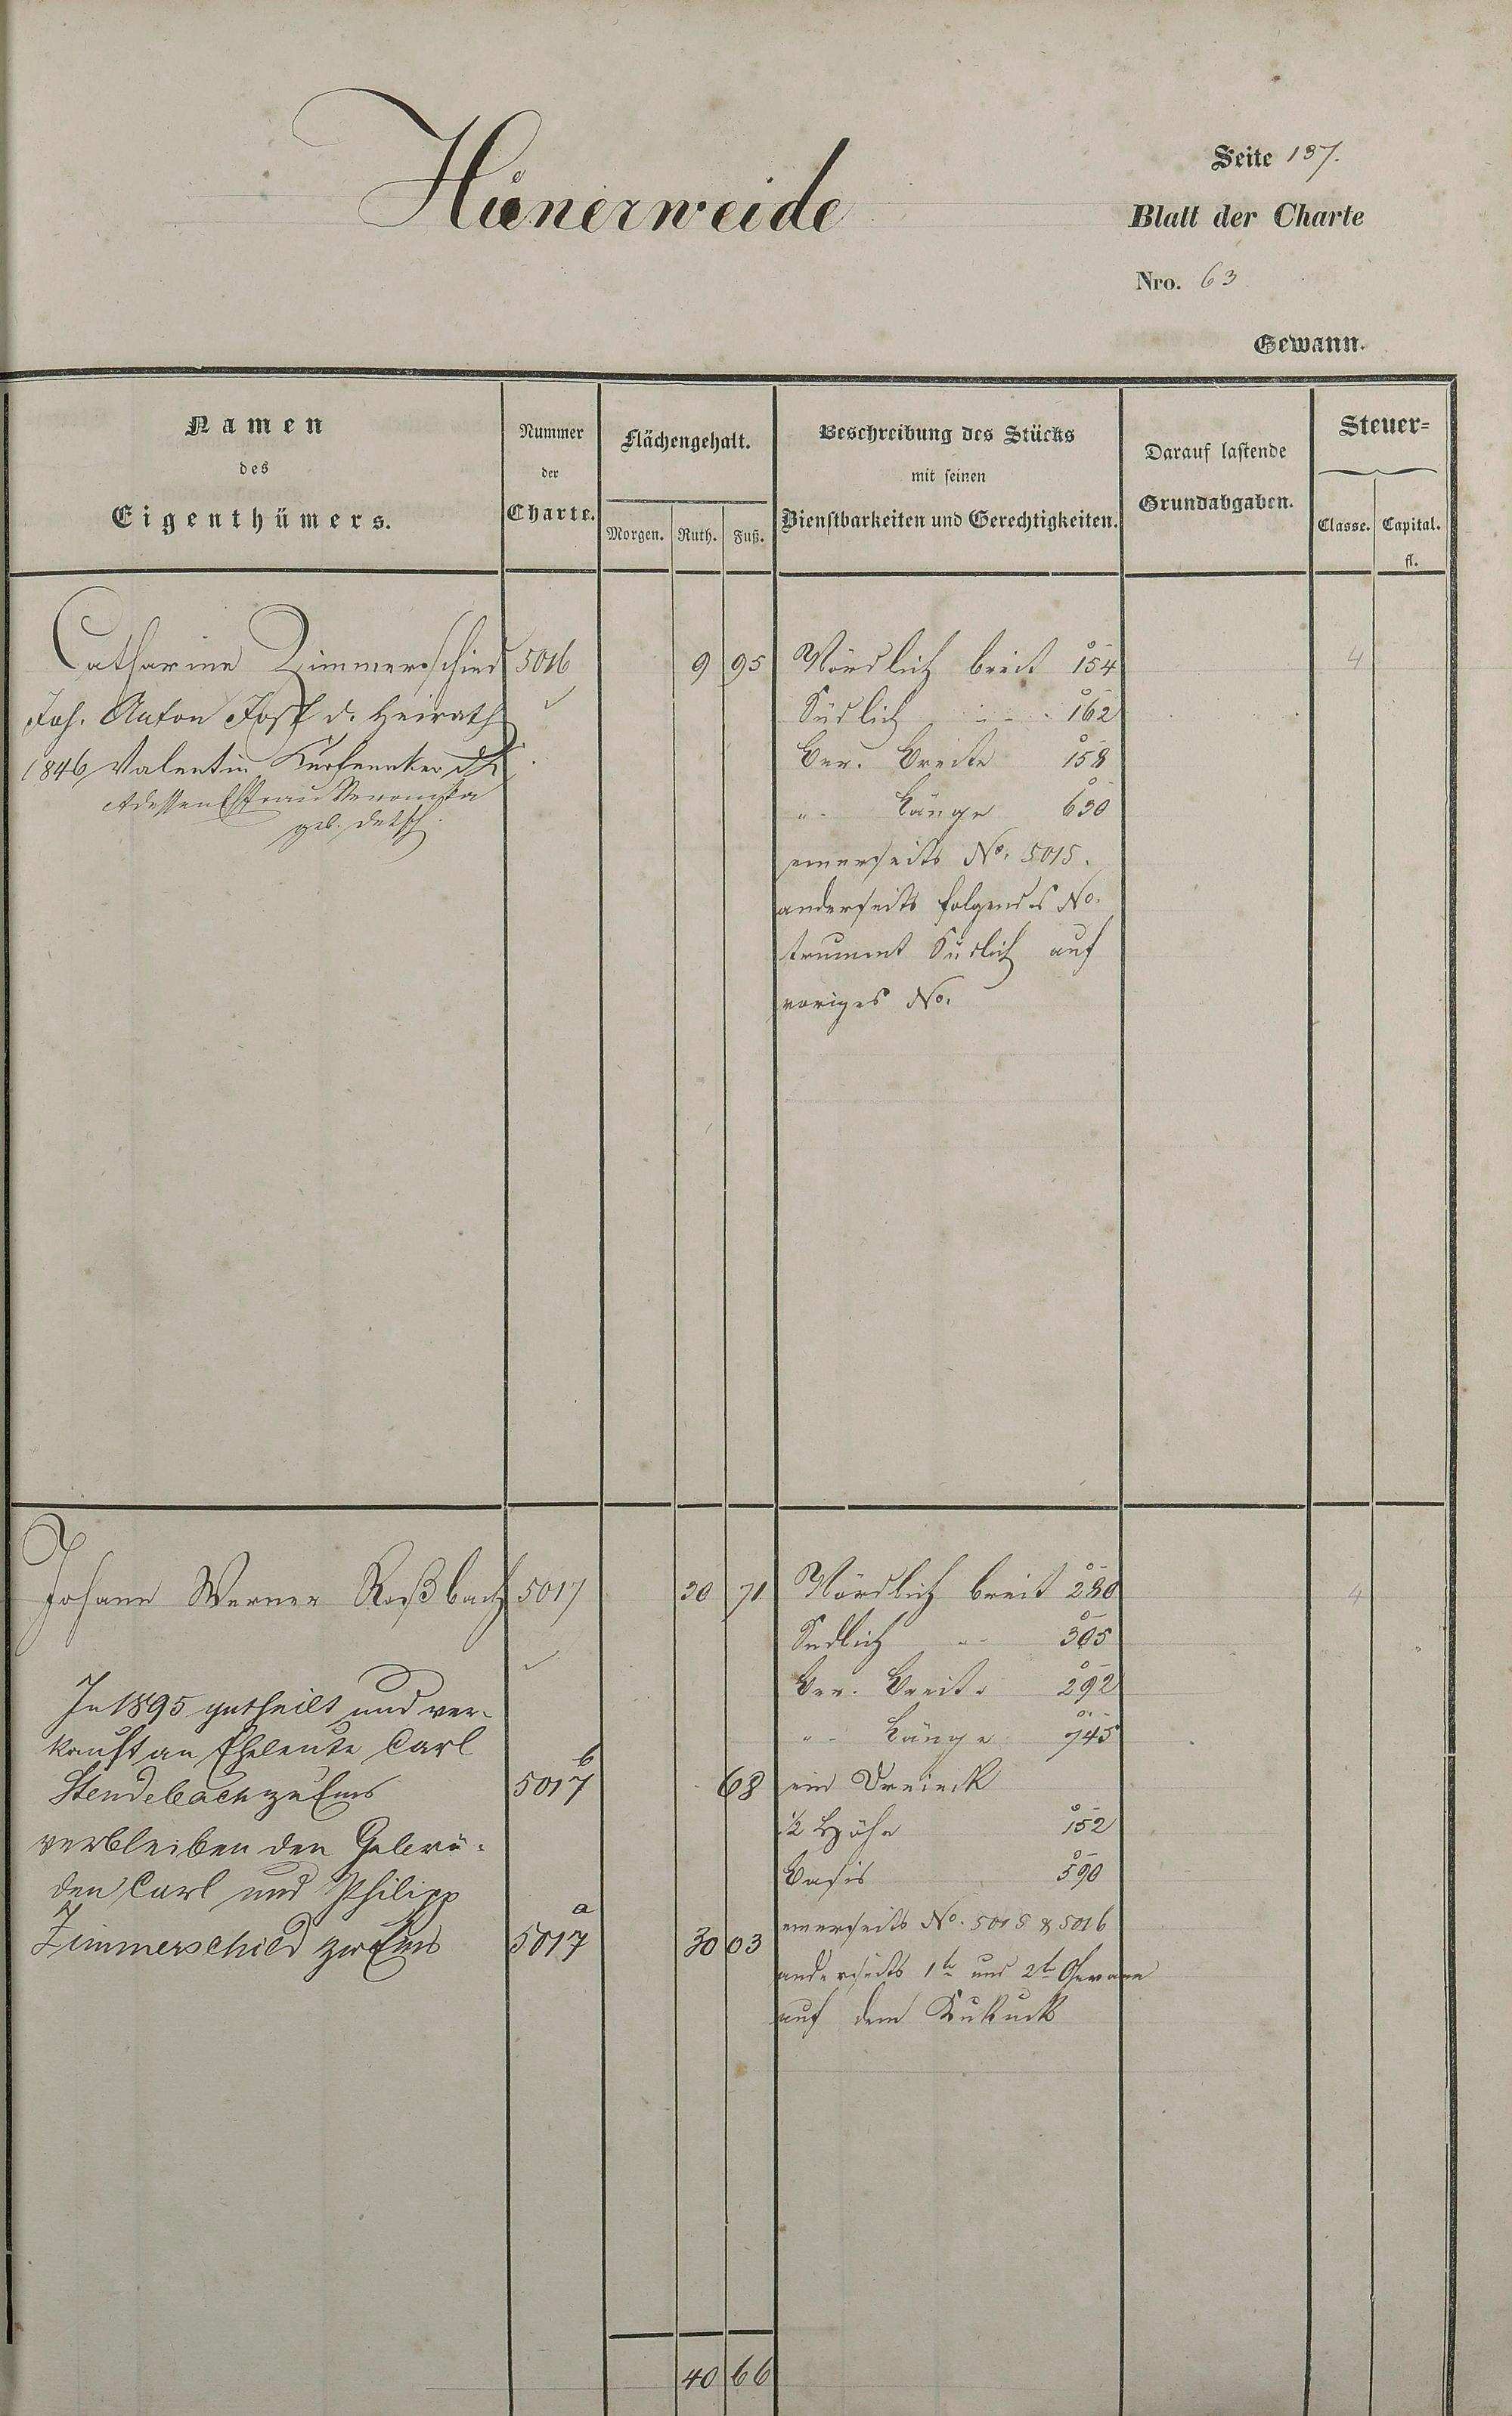 Hünerweide
Seite 137.
Blatt der Charte
Nro. 63
Gewann.
Namen
des
Eigenthümers.
Nummer
der
Charte.
Flächengehalt.
Morgen. Ruth. Fuß.
Beschreibung des Stücks
mit seinen
Dienstbarkeiten und Gerechtigkeiten.
Darauf lastende
Grundabgaben.
Steuer=
Classe. Capital.
fl.
Catharine Zimmerschied 5016 9 95 Nördlich breit 154 4
Joh. Anton Jost d. Heirath Südlich 162
1846 Valentin Ber. Breite 158
geb. Länge 630
einerseits No. 5015.
anderseits folgendes No.
Südlich auf
voriges No.
Johann Werner Roßbach 5017 30 71 Nördlich breit 280 4
Sudlich 305
Ber. Breite 292
In 1895 getheilt und ver-
Länge 745
kauft an Eheleute Carl
Stendebach zu Ems 5017 b 68 ein Dreieck
1/2 Höhe 152
verbleiben den Gebrü-
Basis 590
den Carl und Philipp
einerseits No. 5015 & 5016
Zimmerschild zu Ems 5017 a 30 03
anderseits 1te und 2te Gewann
auf dem Kukuck
40 66